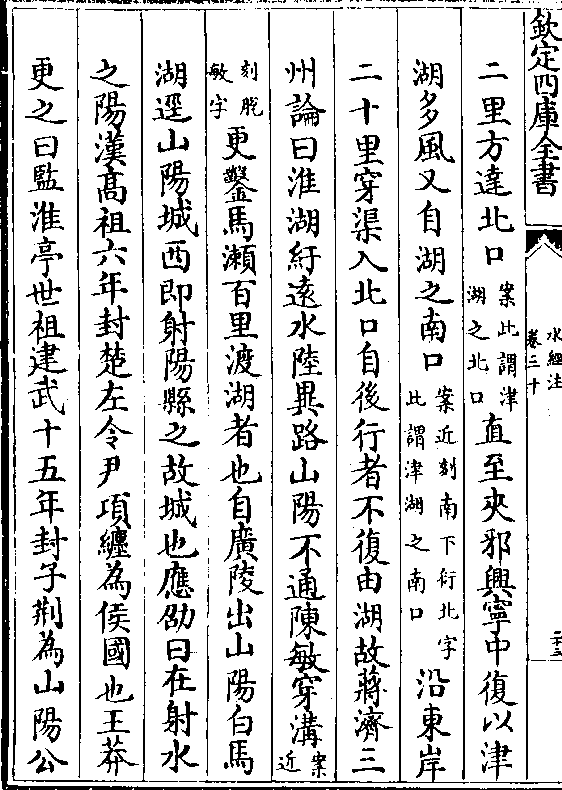 欽定四庫全書
水經注
卷三十
二里方達北口案此謂津湖之北口直至夾邪興寧中復以津
湖多風又自湖之南口案近刻南下衍北字此謂津湖之南口沿東岸
二十里穿渠入北口自後行者不復由湖故蔣濟三
州論曰淮湖紆遠水陸異路山陽不通陳敏穿溝案近
刻脫敏字更鑿馬瀬百里渡湖者也自廣陵出山陽白馬
湖逕山陽城西即射陽縣之故城也應劭曰在射水
之陽漢髙祖六年封楚左令尹項纒為侯國也王莽
更之曰監淮亭世祖建武十五年封子荆為山陽公